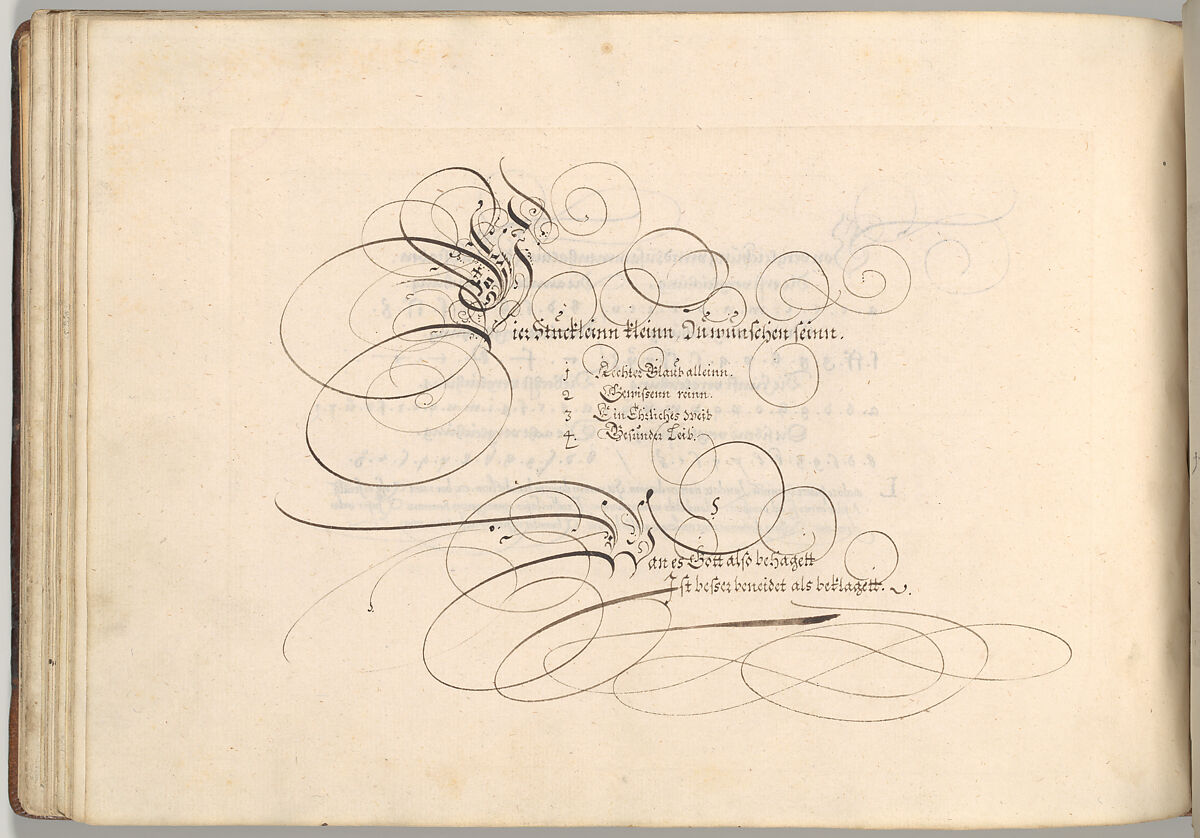 Vier Stucklein klein, Zu wunschen seinn.
1 Rechter Glaub alleinn.
2 Gewissenn reinn.
3 Ein Ehrliches Weib
4. Gesunder Leib.
Wan es Gott also behagett
Ist besser beneidet als beklagett.